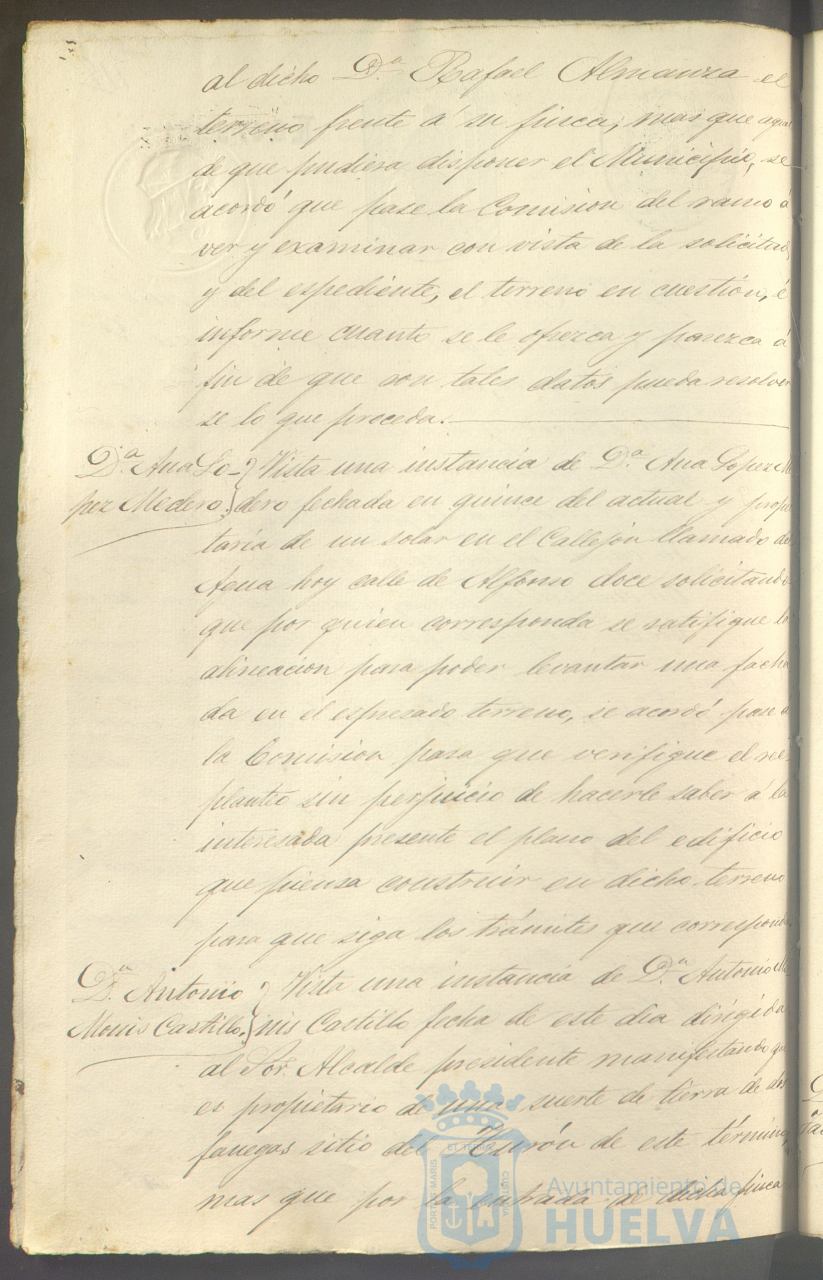 al dicho D.ⁿ Rafael Almanza el
terreno frente á su finca, mas que aquel
de que pudiera disponer el Municipio, se
acordó que pase la Comision del ramo á
ver y examinar con vista de la solicitud
y del espediente, el terreno en cuestión, é
informe cuanto se le ofrezca y parezca á
fin de que con tales datos pueda resolver
se lo que proceda.
D.ª Ana Lo-
pez Medero
Vista una instancia de D.ª Ana Lopez Me
dero fechada en quince del actual y propie
taria de un solar en el Callejón llamado del
Agua hoy calle de Alfonso doce solicitando
que por quien corresponda se ratifique la
alineacion para poder levantar una facha
da en el espresado terreno, se acordó pase á
la Comision para que verifique el re
planteo sin perjuicio de hacerle saber á la
interesada presente el plano del edificio
que piensa construir en dicho terreno
para que siga los trámites que corresponda.
D.ⁿ Antonio
Monis Castillo
Vista una instancia de D.ⁿ Antonio Mo
nis Castillo fecha de este dia dirigida
al Sor. Alcalde presidente manifestando que
es propietario de una suerte de tierra de dos
fanegas sitio del de este término,
mas que por la entrada de dicha finca
PORTUS MARIS
ET TERRÆ
CUSTODIA
Ayuntamiento de
HUELVA